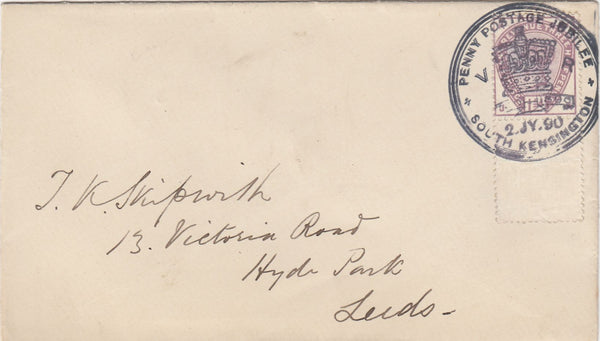 ★ PENNY POSTAGE JUBILEE ★
V R
2.JY.90
SOUTH KENSINGTON
T. K. Skipwith
13. Victoria Road
Hyde Park
Leeds-